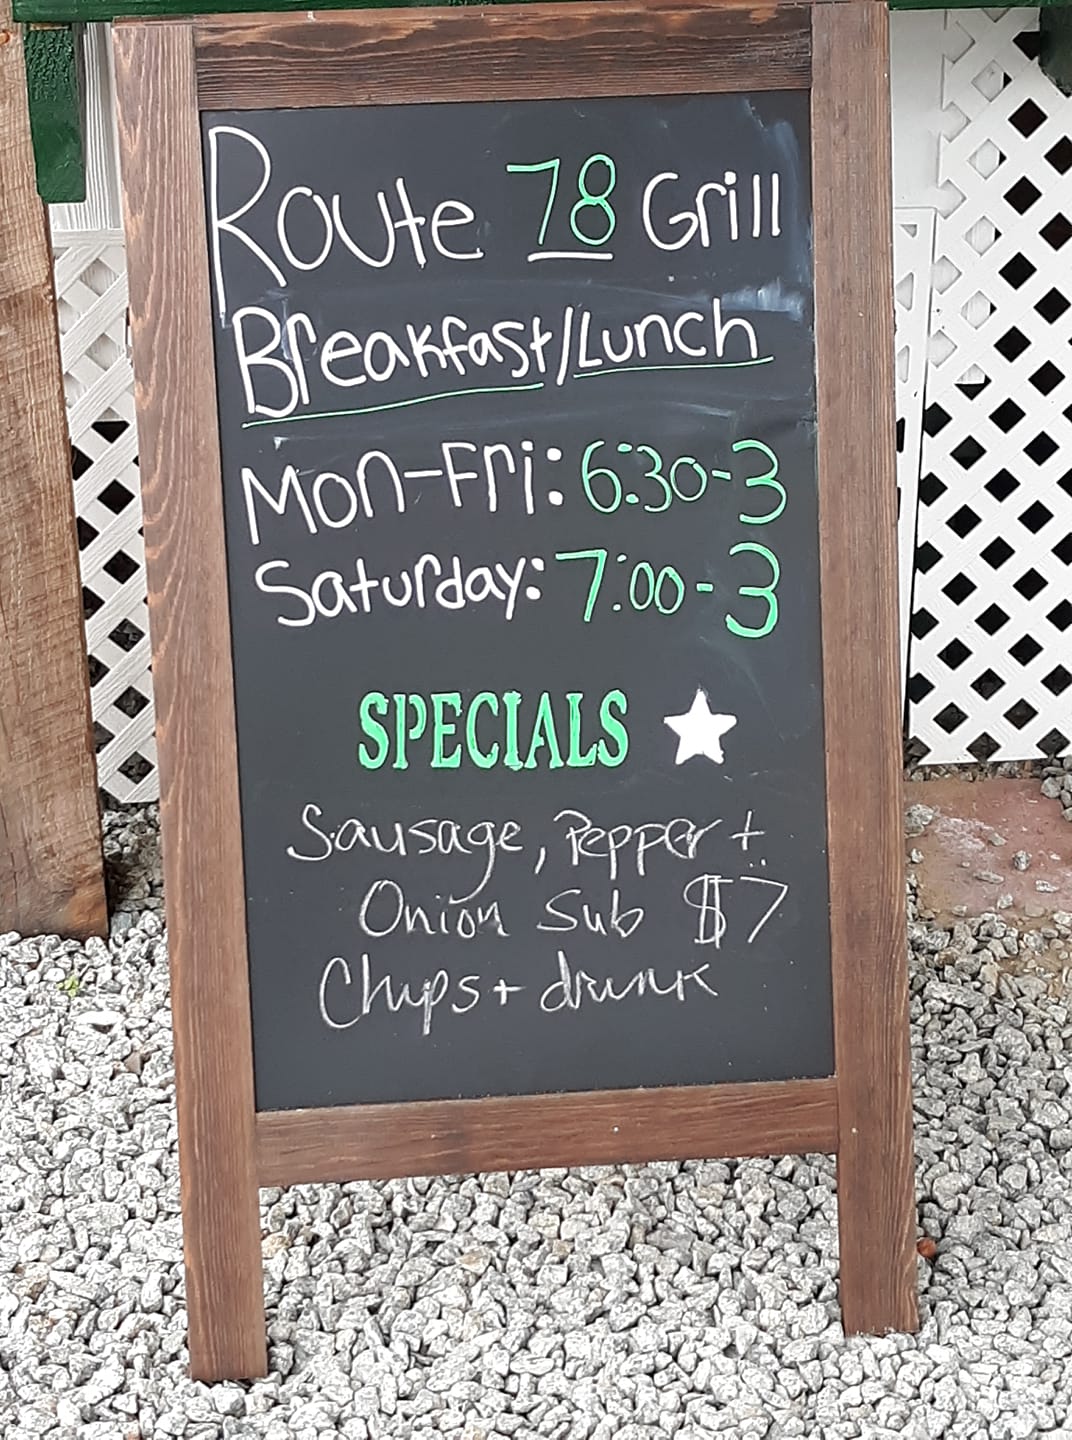 Route 78 Grill
Breakfast/Lunch
Mon-Fri: 6:30-3
Saturday: 7:00-3
SPECIALS
Sausage, Pepper +
Onion Sub $7
Chips + drink